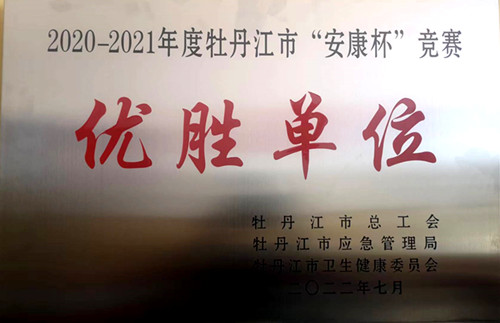 2020-2021年度牡丹江市“安康杯”竞赛
优胜单位
牡丹江市总工会
牡丹江市应急管理局
牡丹江市卫生健康委员会
二〇二二年七月